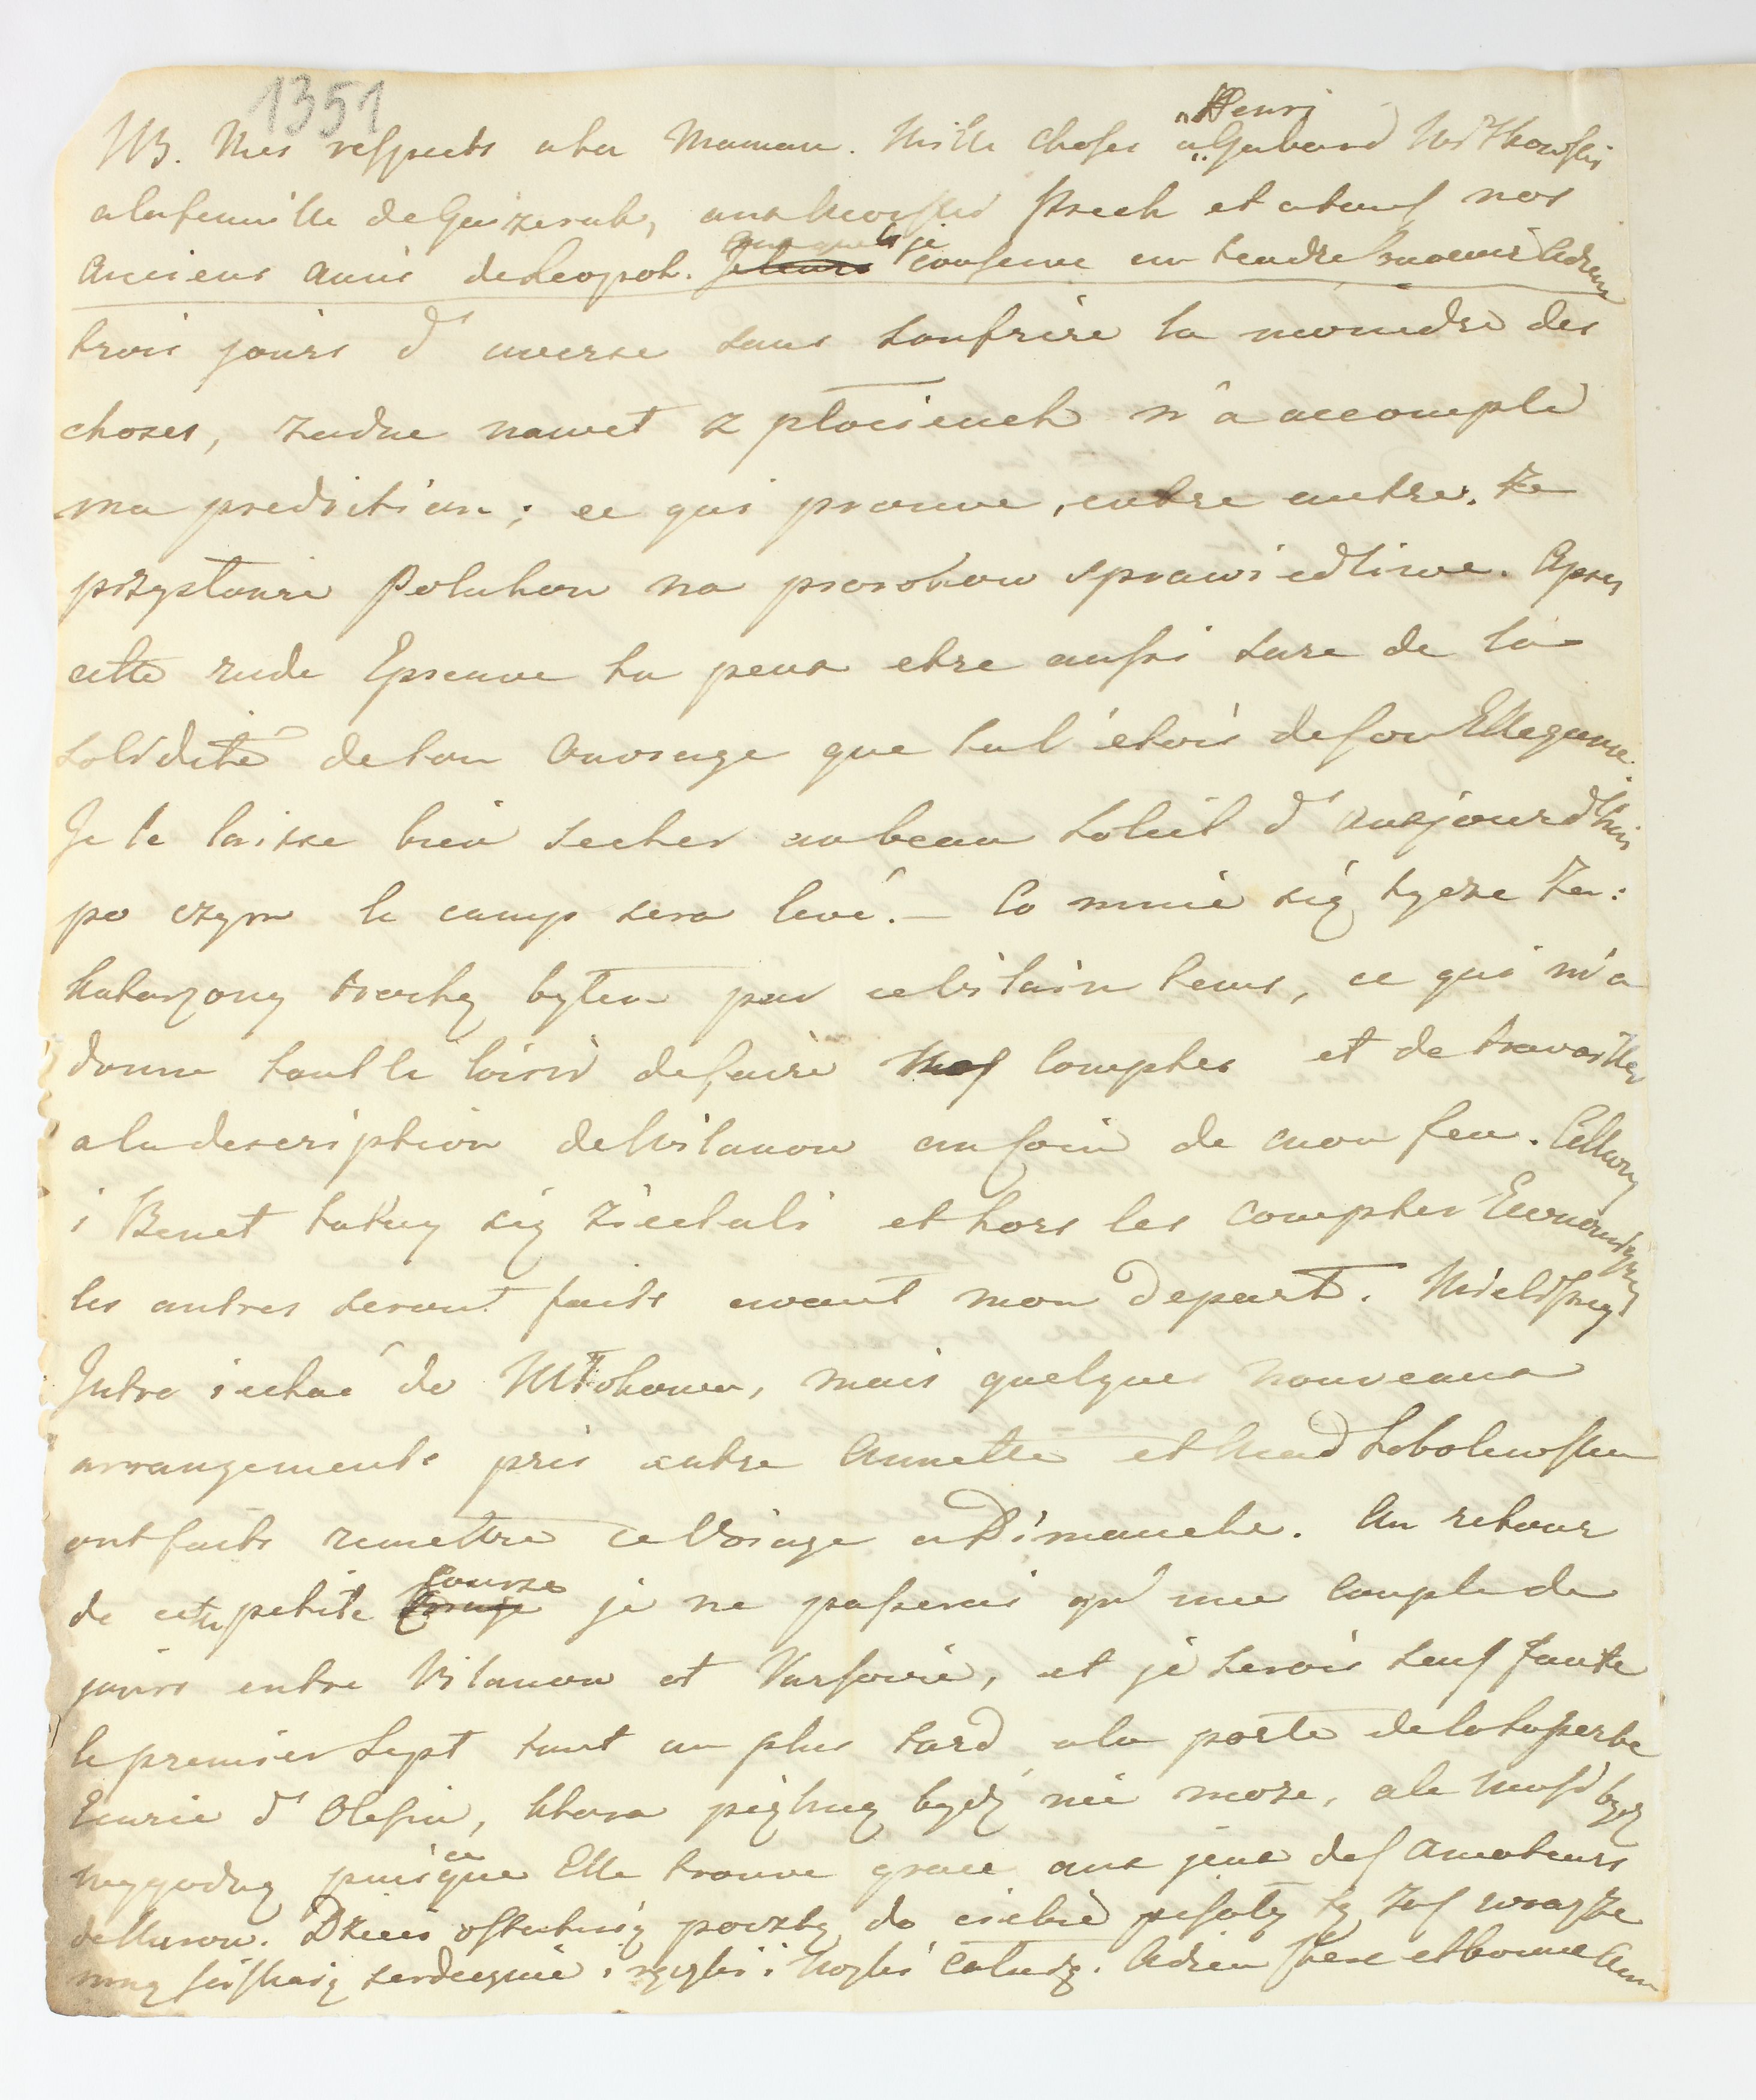 1351
Henri
NB. Mes respects a ta Maman. Mille choses a Witkowski
a la famille de ant et a tous nos
Anciens Amis de Leopol. je conserve un tendre Adieu
trois jours d' averse sans soufrire la moindre des
choses, zadne nawet z plocienek n'a accompli
ma prediction; ce qui prouve, entre autre. ze
przysłowie Polakow na prorokow sprawiedliwe. Apres
cette rude Epreuve tu peux etre aussi sure de la
solidité de ton Ouvrage que tu l'étois de son Ellegance.
Je le laisse bien secher au beau soleil d' aujourd'hui
po czym le camp sera levé. – Co mnie się tycze Za:
katarzony trochę byłem par ce vilain tems, ce qui m'a
donne tout le loisir de faire mes Comptes et de travailler
a la description de Wilanow au coin de mon feu.
i Benet takży się ziechali et hors les comptes
les autres seront faits avant mon Depart.
Jutro iechać do mais quelques nouveaux
arrangements pris entre Annette et Mad Sobolewska
ont faits remettre ce Voiage a Dimanche. Au retour
de cette petite Course je ne passerais qu' une Couple de
jours entre Vilanow et Varsovie, et je serois sans faute
le premier Sept tout au plus tard, a la porte de la superbe
Ecurie d' Olesin, ktora piękną bydź nie może, ale musi bydź
wygodną puisque Elle trouve grace aux jeux des Amateurs
de Dzieci ostatnią pocztą do ciebie pisały ty zas wraz ze
mną sciskaią serdecznie i rączki i nozki całuią. Adieu chere et bonne